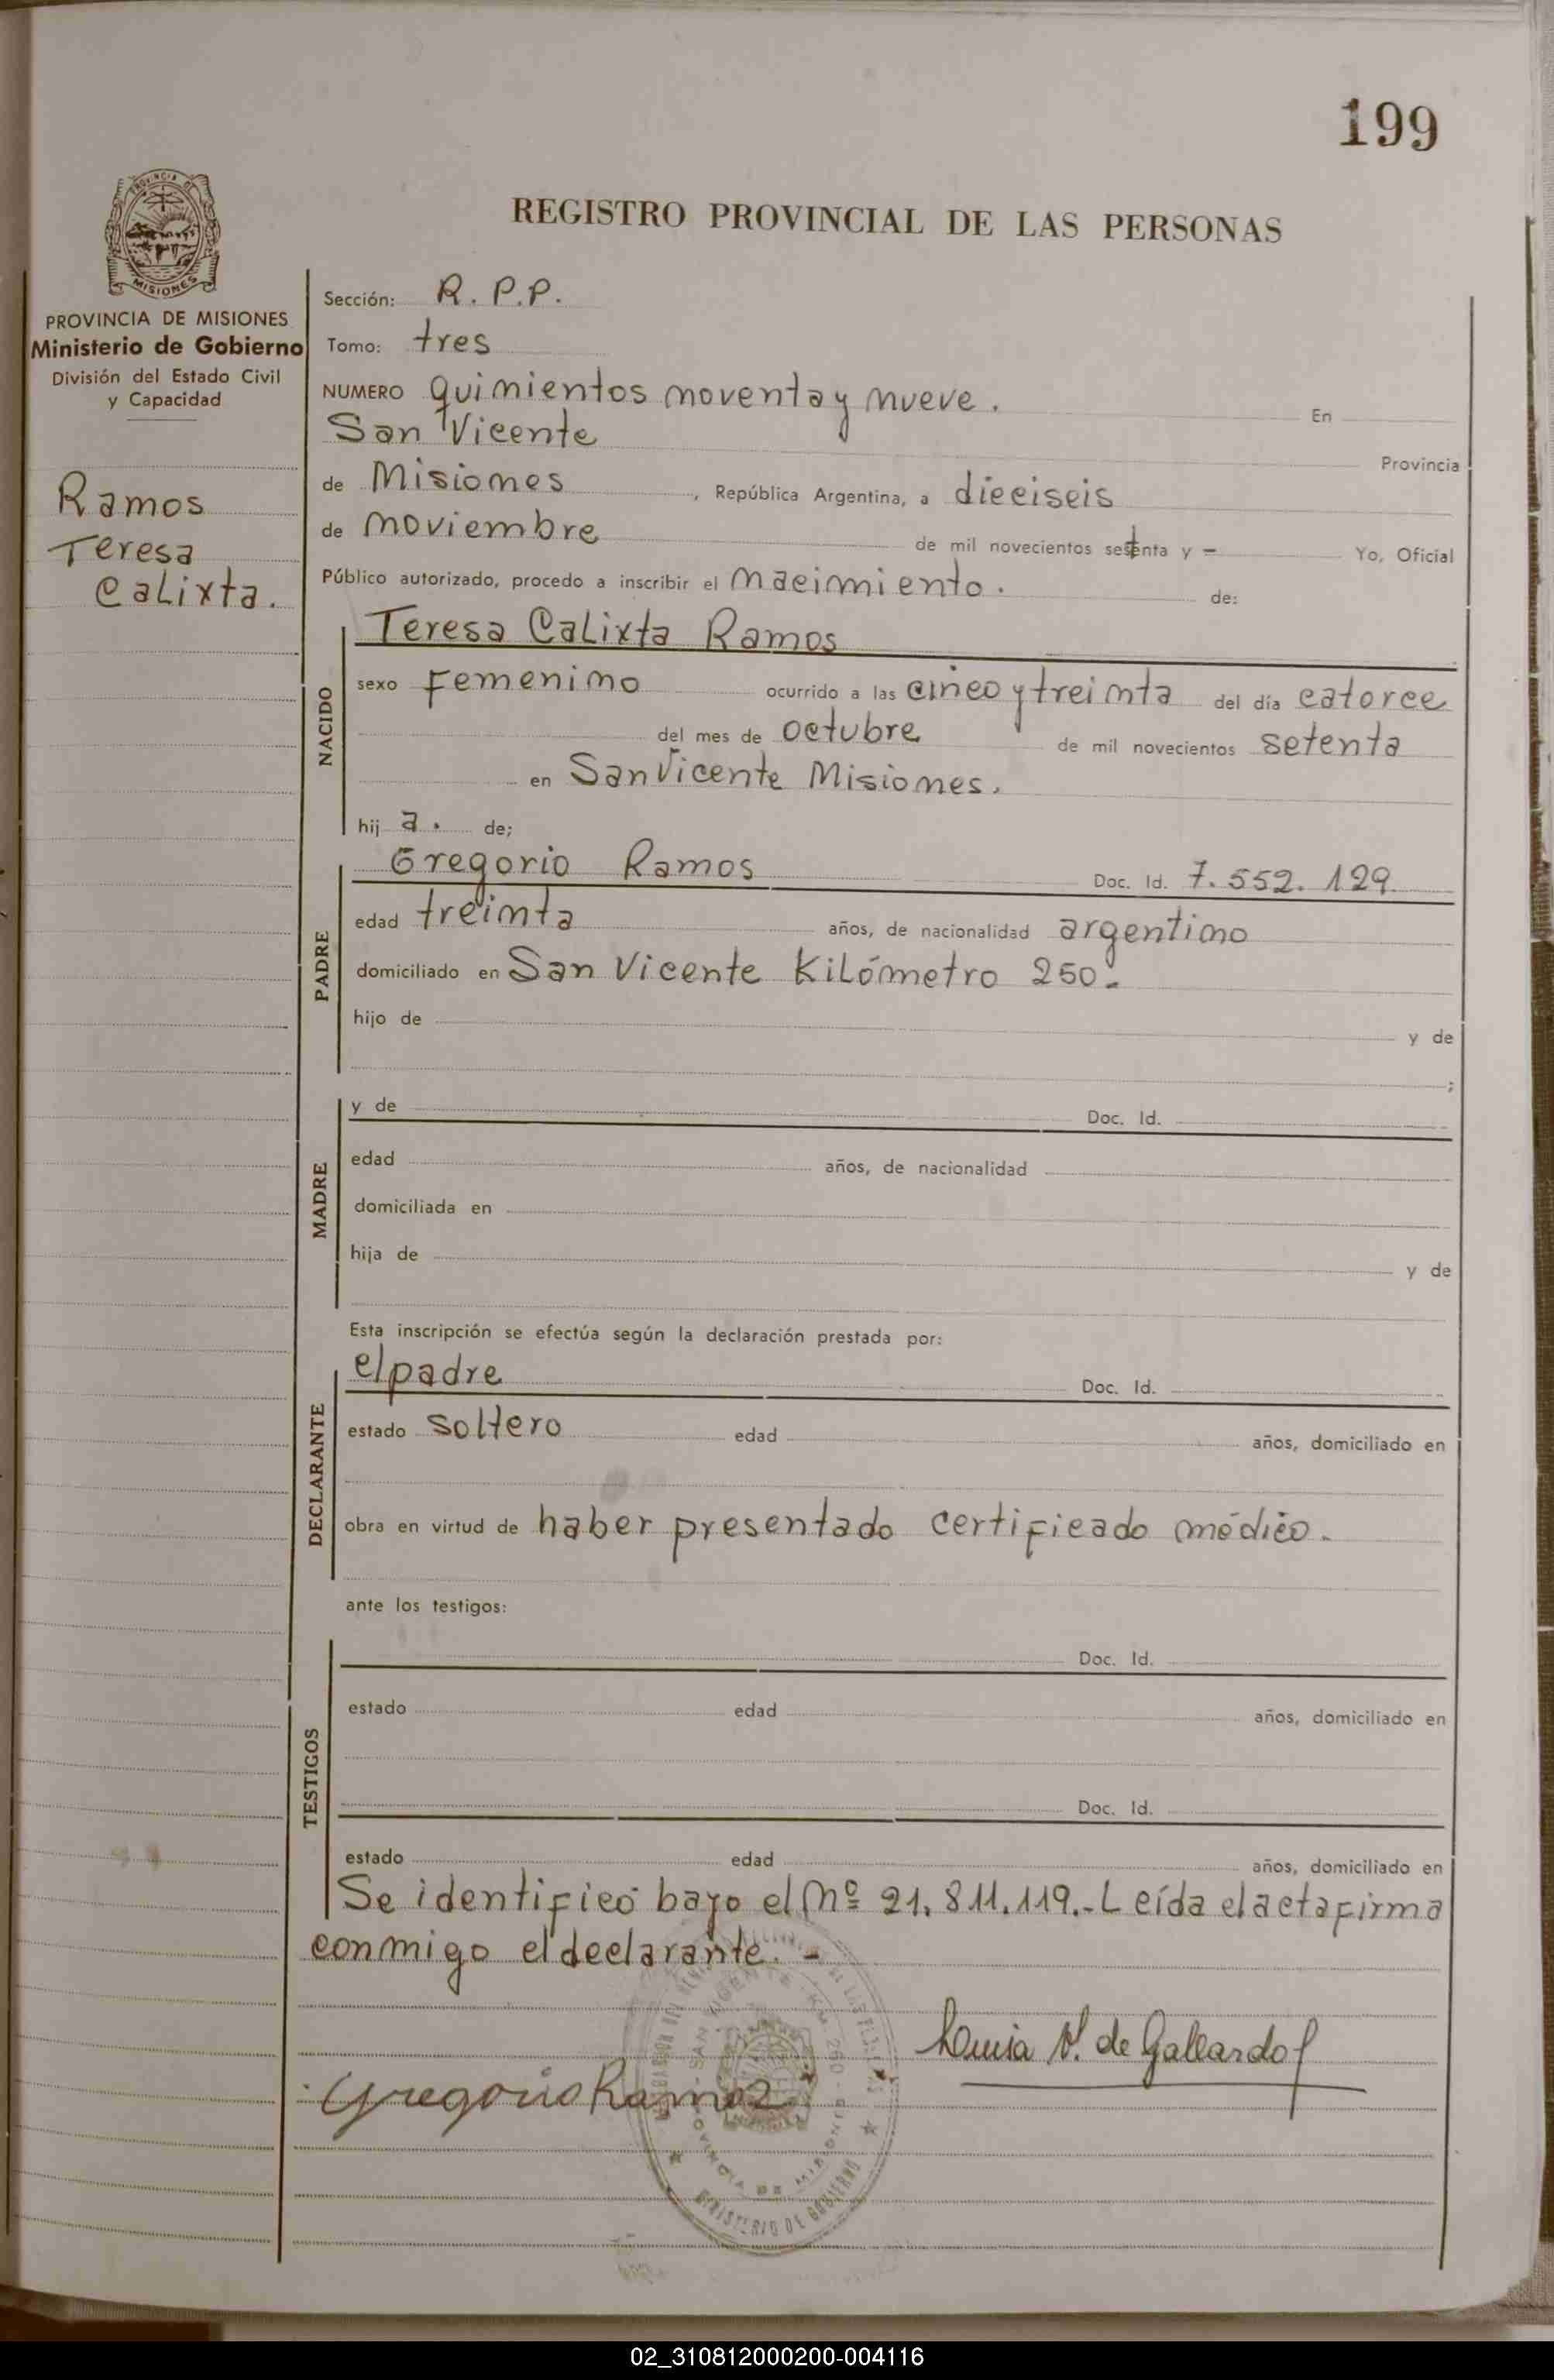 199
REGISTRO PROVINCIAL DE LAS PERSONAS
PROVINCIA DE
MISIONES
PROVINCIA DE MISIONES
Ministerio de Gobierno
División del Estado Civil
y Capacidad
Ramos
Teresa
Calixta.
Sección: R. P.P.
Tomo: tres
NUMERO quinientos noventa y nueve. En
San Vicente Provincia
de Misiones, República Argentina, a dieciseis
de noviembre de mil novecientos setenta y - Yo, Oficial
Público autorizado, procedo a inscribir el nacimiento. de:
NACIDO
Teresa Calixta Ramos
sexo Femenino ocurrido a las cinco y treinta del día catorce
del mes de octubre de mil novecientos setenta
en San Vicente Misiones.
hij a. de;
PADRE
Gregorio Ramos Doc. Id. 7.552.129
edad treinta años, de nacionalidad argentino
domiciliado en San Vicente Kilómetro 250.
hijo de y de
;
MADRE
y de Doc. Id.
edad años, de nacionalidad
domiciliada en
hija de y de
Esta inscripción se efectúa según la declaración prestada por:
DECLARANTE
el padre Doc. Id.
estado soltero edad años, domiciliado en
obra en virtud de haber presentado certificado médico.
ante los testigos:
TESTIGOS
Doc. Id.
estado edad años, domiciliado en
Doc. Id.
estado edad años, domiciliado en
Se identificó bajo el Nº 21.811.119.- Leída el acta firma
conmigo el declarante. -
Gregorio Ramos
V. de Gallardo
SAN VICENTE
PROVINCIA DE MISIONES
MINISTERIO DE GOBIERNO
02_310812000200-004116